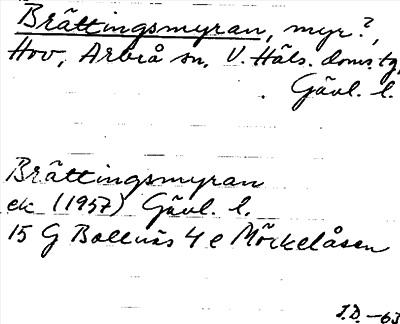 Brättingsmyran, myr?,
Hov, Arbrå sn, V. Häls. doms. tg,
Gävl. l.
Brättingsmyran
ek (1957) Gävl. l.
15 G Bollnäs 4 e Mörkelåsen
J.D. -63